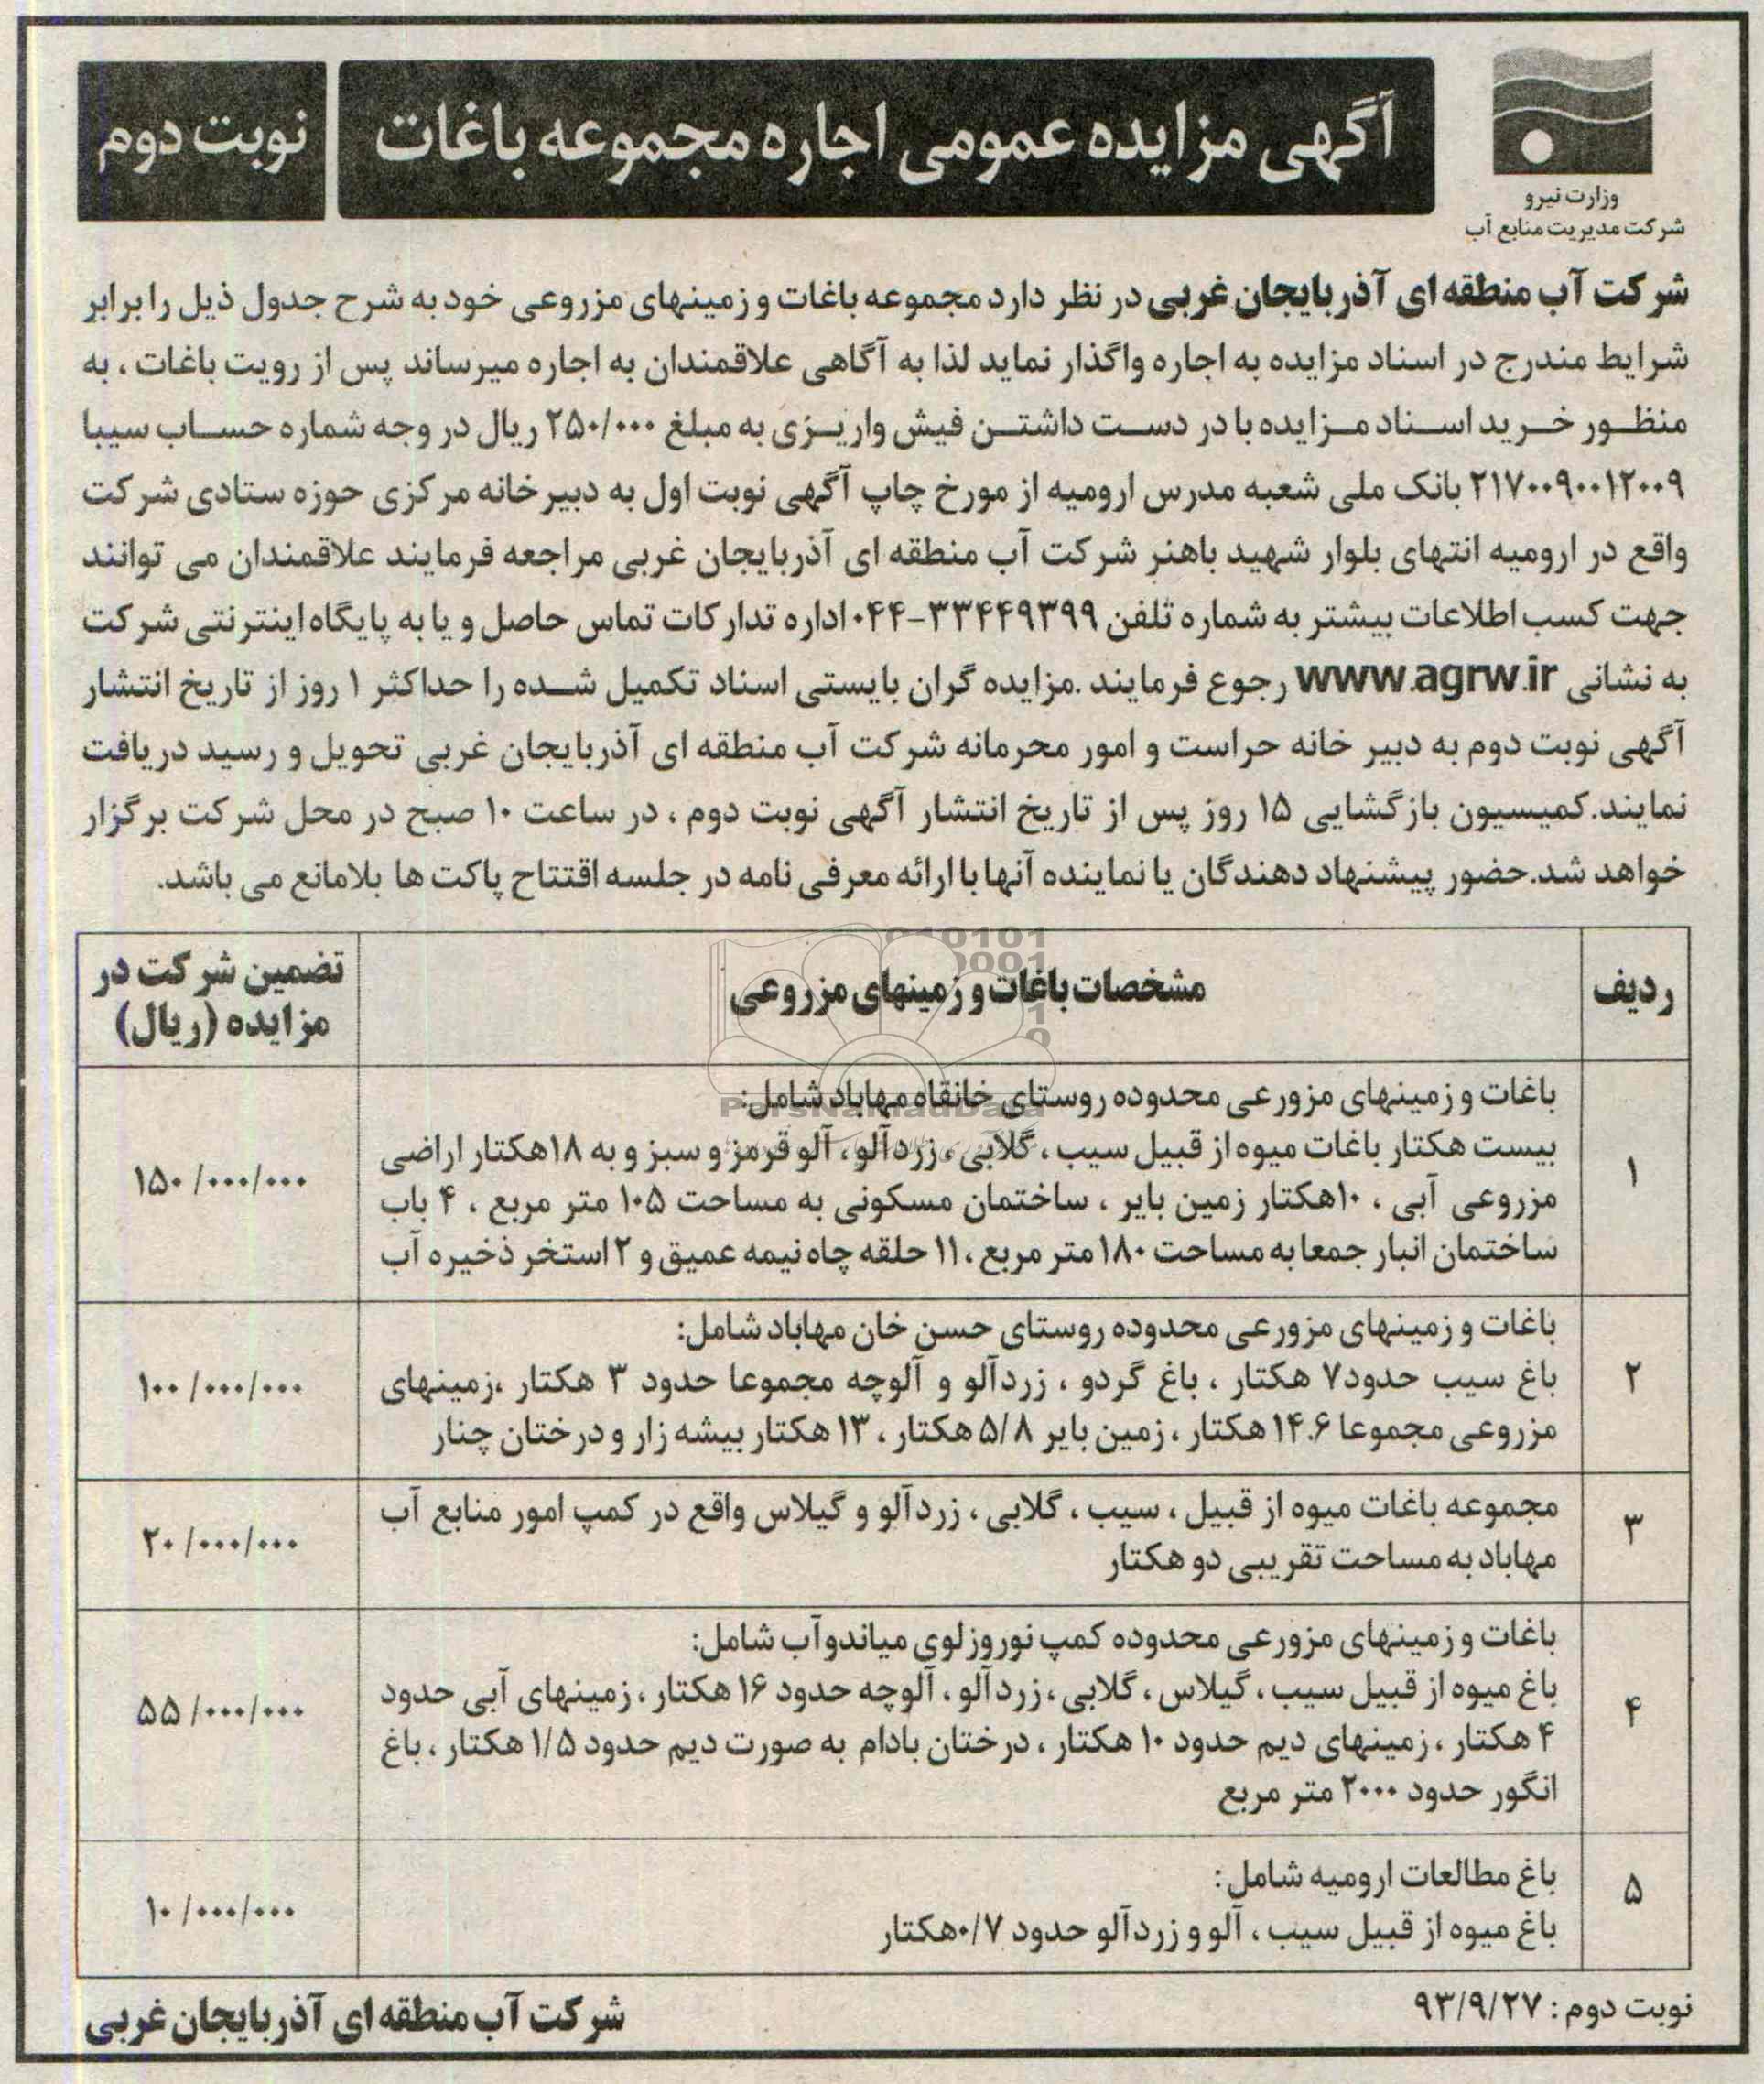 آگهی مزایده عمومی اجاره مجموعه باغات
نوبت دوم
وزارت نیرو
شرکت مدیریت منابع آب
شرکت آب منطقه ای آذربایجان غربی در نظر دارد مجموعه باغات و زمینهای مزروعی خود به شرح جدول ذیل را برابر
شرایط مندرج در اسناد مزایده به اجاره واگذار نماید لذا به آگاهی علاقمندان به اجاره میرساند پس از رویت باغات ، به
منظور خرید اسناد مزایده با در دست داشتن فیش واریزی به مبلغ ۲۵۰/۰۰۰ ریال در وجه شماره حساب سیبا
۲۱۷۰۰۹۰۰۱۲۰۰۹ بانک ملی شعبه مدرس ارومیه از مورخ چاپ آگهی نوبت اول به دبیرخانه مرکزی حوزه ستادی شرکت
واقع در ارومیه انتهای بلوار شهید باهنر شرکت آب منطقه ای آذربایجان غربی مراجعه فرمایند علاقمندان می توانند
جهت کسب اطلاعات بیشتر به شماره تلفن ۳۳۴۴۹۳۹۹-۰۴۴ اداره تدارکات تماس حاصل و یا به پایگاه اینترنتی شرکت
به نشانی www.agrw.ir رجوع فرمایند .مزایده گران بایستی اسناد تکمیل شده را حداکثر ۱ روز از تاریخ انتشار
آگهی نوبت دوم به دبیر خانه حراست و امور محرمانه شرکت آب منطقه ای آذربایجان غربی تحویل و رسید دریافت
نمایند.کمیسیون بازگشایی ۱۵ روز پس از تاریخ انتشار آگهی نوبت دوم ، در ساعت ۱۰ صبح در محل شرکت برگزار
خواهد شد.حضور پیشنهاد دهندگان یا نماینده آنها با ارائه معرفی نامه در جلسه افتتاح پاکت ها بلامانع می باشد.
ردیف
مشخصات باغات و زمینهای مزروعی
تضمین شرکت در
مزایده (ریال)
۱
باغات و زمینهای مزورعی محدوده روستای خانقاه مهاباد شامل:
بیست هکتار باغات میوه از قبیل سیب ، گلابی ، زردآلو ، آلو قرمز و سبز و به ۱۸هکتار اراضی
مزروعی آبی ، ۱۰هکتار زمین بایر ، ساختمان مسکونی به مساحت ۱۰۵ متر مربع ، ۴ باب
ساختمان انبار جمعا به مساحت ۱۸۰ متر مربع ، ۱۱ حلقه چاه نیمه عمیق و ۲ استخر ذخیره آب
۱۵۰/۰۰۰/۰۰۰
۲
باغات و زمینهای مزورعی محدوده روستای حسن خان مهاباد شامل:
باغ سیب حدود۷ هکتار ، باغ گردو ، زردآلو و آلوچه مجموعا حدود ۳ هکتار ،زمینهای
مزروعی مجموعا ۱۴.۶ هکتار ، زمین بایر ۵/۸ هکتار ، ۱۳ هکتار بیشه زار و درختان چنار
۱۰۰/۰۰۰/۰۰۰
۳
مجموعه باغات میوه از قبیل ، سیب ، گلابی ، زردآلو و گیلاس واقع در کمپ امور منابع آب
مهاباد به مساحت تقریبی دو هکتار
۲۰/۰۰۰/۰۰۰
۴
باغات و زمینهای مزورعی محدوده کمپ نوروزلوی میاندوآب شامل:
باغ میوه از قبیل سیب ، گیلاس ، گلابی ، زردآلو ، آلوچه حدود ۱۶ هکتار ، زمینهای آبی حدود
۴ هکتار ، زمینهای دیم حدود ۱۰ هکتار ، درختان بادام به صورت دیم حدود ۱/۵ هکتار ، باغ
انگور حدود ۲۰۰۰ متر مربع
۵۵/۰۰۰/۰۰۰
۵
باغ مطالعات ارومیه شامل:
باغ میوه از قبیل سیب ، آلو و زردآلو حدود ۰/۷هکتار
۱۰/۰۰۰/۰۰۰
نوبت دوم : ۹۳/۹/۲۷
شرکت آب منطقه ای آذربایجان غربی
ParsNamadData